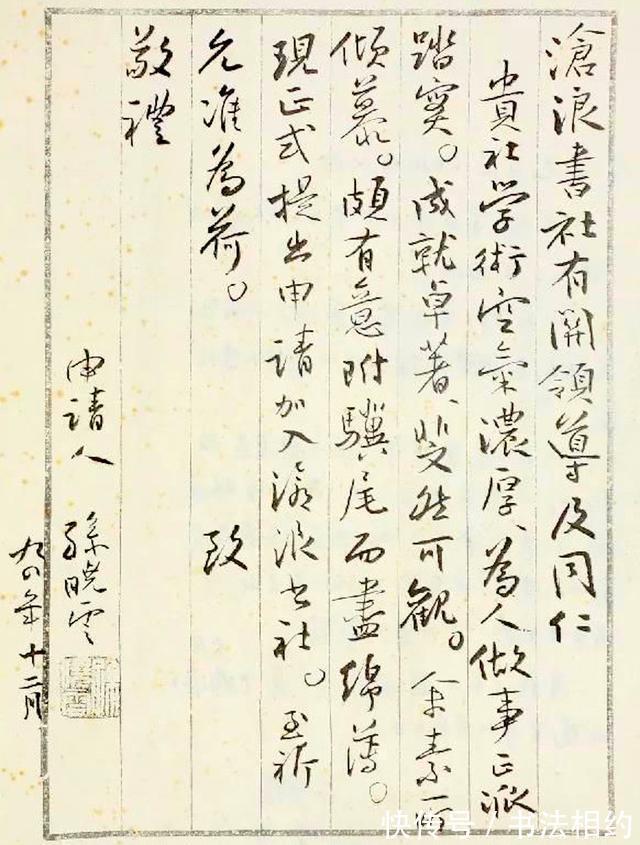 滄浪書社有關領導及同仁
貴社学術空氣濃厚、為人做事正派
踏實。成就卓著、斐然可觀。余素所
傾慕。頗有意附驥尾而盡綿薄。
現正式提出申请加入滄浪书社。至祈
允准為荷。　致
敬禮
申请人　孫晓雲
九四年十二月
快传号/书法相约